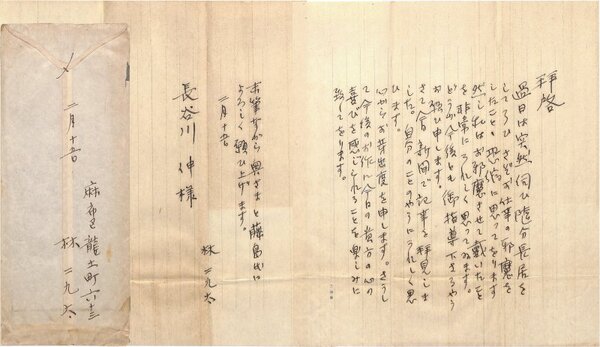 拝啓
過日は突然伺ひ随分長居を
してうひさぞお仕事の邪魔を
したことゝ恐縮に思ってをります
然し私はお邪魔させて戴いたこと
を非常にうれしく思ってゐます。
どうか今後とも御指導下さるやう
お願ひ申します。
さて今日新聞で記事を拝見しま
した。自分のことのやうにうれしく思
ひます。
心からお芽出度を申します。さうし
て今後のお作に今日の貴方の心の
喜びを感じられることを楽しみに
致してをります。
末筆ながら奥さまと藤島氏に
よろしく願ひ上げます。
二月十五日
林二九太
長谷川伸様
〆
二月十五日
麻布龍土町六十三
林二九太